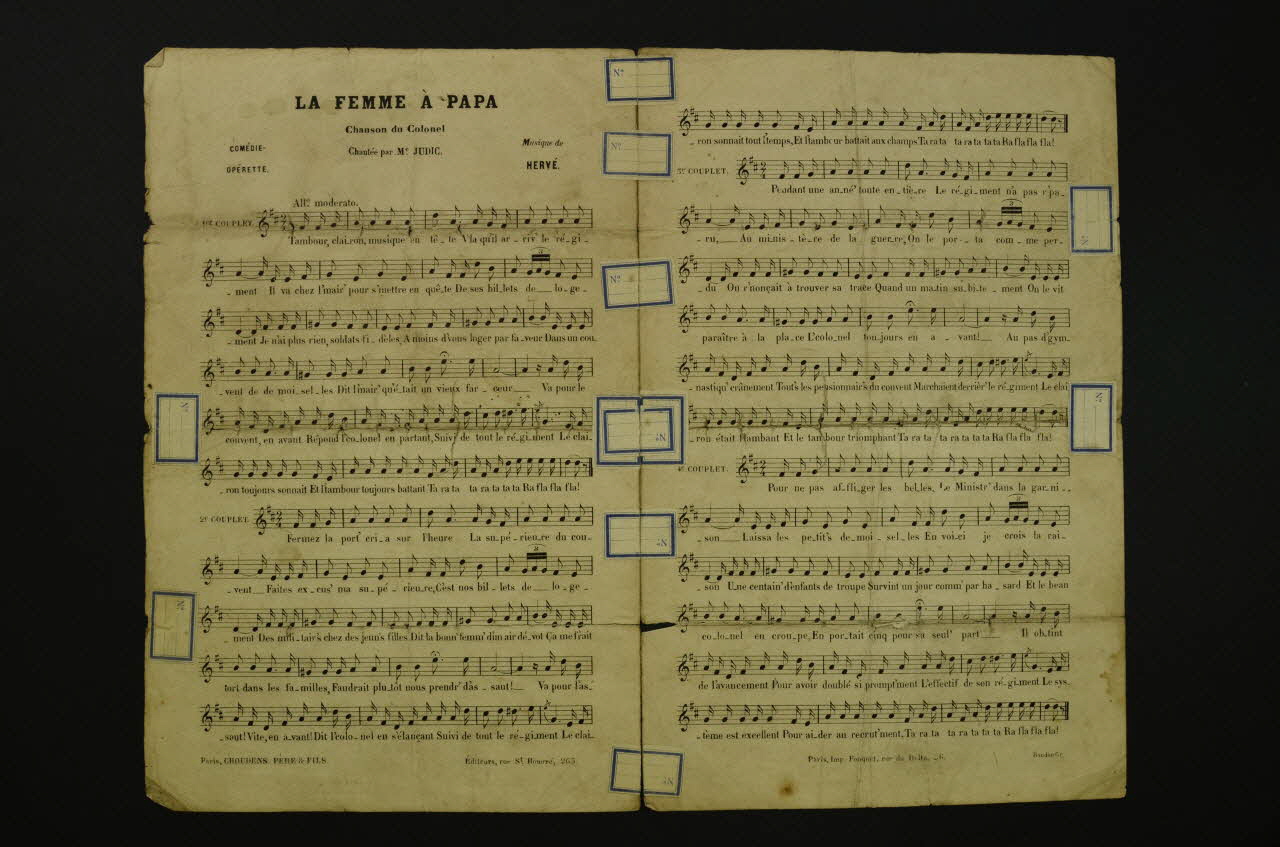 LA FEMME À PAPA
Chanson du Colonel
COMÉDIE-
OPÉRETTE.
Chantée par Me JUDIC.
Musique de
HERVÉ.
Allo moderato.
1er COUPLET.
Tambour, clai_ron, musique en tê_te V'là qu'il ar_riv' le ré_gi_
_ment Il va chez l'mair' pour s'mettre en quê_te De ses bil_lets de__ lo_ge_
_ment Je n'ai plus rien, soldats fi_dèles, A moins d'vous loger par fa_veur Dans un cou_
vent de de moi_sel_les Dit l'mair' qu'é_tait un vieux far_ceur__ Va pour le
couvent, en avant Répond l'co_lonel en partant, Suivi de tout le ré_gi_ment Le clai_
_ron toujours sonnait Et l'tambour toujours battant Ta ra ta ta ra ta ta ta Ra fla fla fla!
2e COUPLET.
Fermez la port' cri_a sur l'heure La su_pé_rieu_re du cou_
_vent__ Faites ex_cus' ma su_pé_rieu_re, C'est nos bil_lets de__ lo_ge_
_ment Des mili_tair's chez des jeun's filles Dit la bonn' femm' d'un air dé_vot Ça me f'rait
tort dans les fa_milles, Faudrait plu_tôt nous prendr' d'as_saut!__ Va pour l'as_
_saut! Vite, en a_vant! Dit l'colo_nel en s'élançant Suivi de tout le ré_gi_ment Le clai_
Paris, CHOUDENS PERE & FILS
Éditeurs, rue St Honoré, 265
_ron sonnait tout l'temps, Et l'tambour battait aux champs Ta ra ta ta ra ta ta ta Ra fla fla fla!
3e COUPLET.
Pendant une an_né' toute en_tiè_re Le ré_gi_ment n'a pas r'pa_
_ru,__ Au mi_nis_tère de la guer_re, On le por_ta com_me per_
_du On r'nonçait à trouver sa trace Quand un ma_tin su_bi_te_ment On le vit
paraître à la pla_ce L'colo_nel tou_jours en a_vant!__ Au pas d'gym_
_nastiqu' crânement Tout's les pensionnair's du couvent Marchaient derrièr' le ré_giment Le clai
_ron était flambant Et le tambour triomphant Ta ra ta ta ra ta ta ta Ra fla fla fla!
4e COUPLET.
Pour ne pas af_fli_ger les bel_les, Le Ministr' dans la gar_ni_
_son__ Laissa les pe_tit's de_moi_sel_les En voi_ci je crois la rai_
_son U_ne centain' d'enfants de troupe Survint un jour comm' par ha_sard Et le beau
co_lo_nel en crou_pe, En por_tait cinq pour sa seul' part__ Il ob_tint
de l'avancement Pour avoir doublé si prompt'ment L'effectif de son ré_gi_ment Le sys_
_tème est excellent Pour ai_der au recrut'ment, Ta ra ta ta ra ta ta ta Ra fla fla fla!
Paris, Imp. Fouquet, rue du Delta, 26.